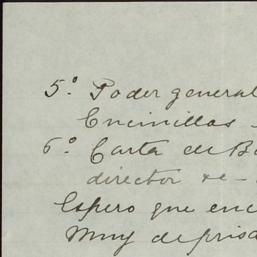 5º Poder general
Encinillas
6º Carta de Ba
director
Espero que enc
Muy deprisa